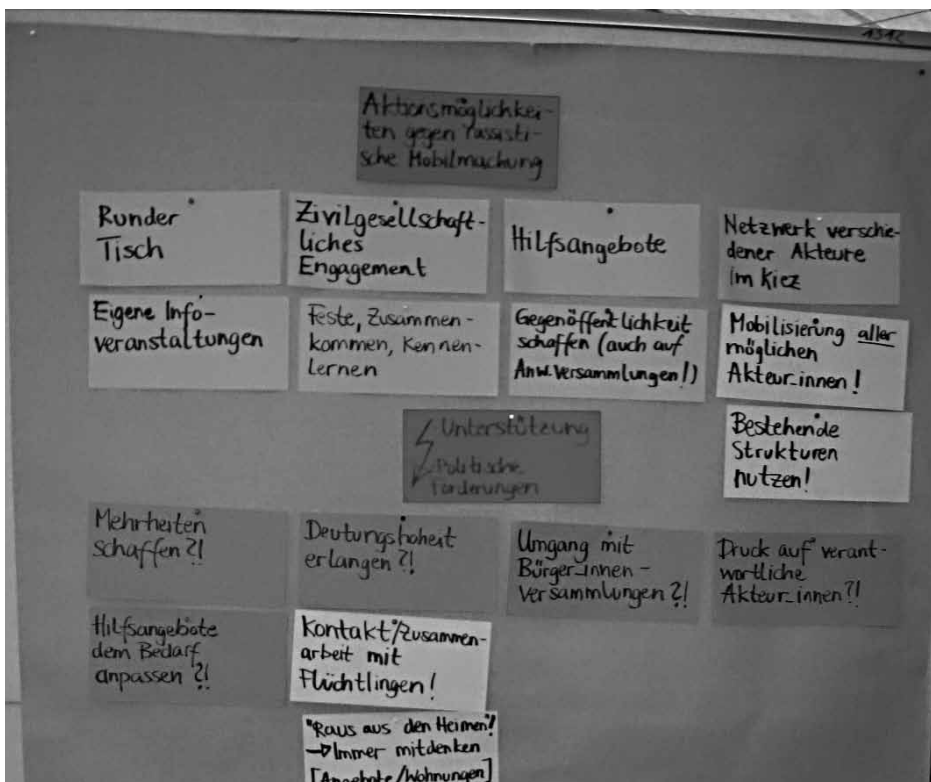 1312
Aktionsmöglichkei-
ten gegen rassisti-
sche Mobilmachung
Runder
Tisch
Zivilgesellschaft-
liches
Engagement
Hilfsangebote
Netzwerk verschie-
dener Akteure
im Kiez
Eigene Info-
veranstaltungen
Feste, Zusammen-
kommen, Kennen-
lernen
Gegenöffentlichkeit
schaffen (auch auf
Anw.versammlungen!)
Mobilisierung aller
möglichen
Akteur_innen!
Unterstützung
Politische
Forderungen
Bestehende
Strukturen
nutzen!
Mehrheiten
schaffen?!
Deutungshoheit
erlangen?!
Umgang mit
Bürger_innen-
versammlungen?!
Druck auf verant-
wortliche
Akteur_innen?!
Hilfsangebote
dem Bedarf
anpassen?!
Kontakt/Zusammen-
arbeit mit
Flüchtlingen!
"Raus aus den Heimen"!
→ Immer mitdenken
[Angebote/Wohnungen]